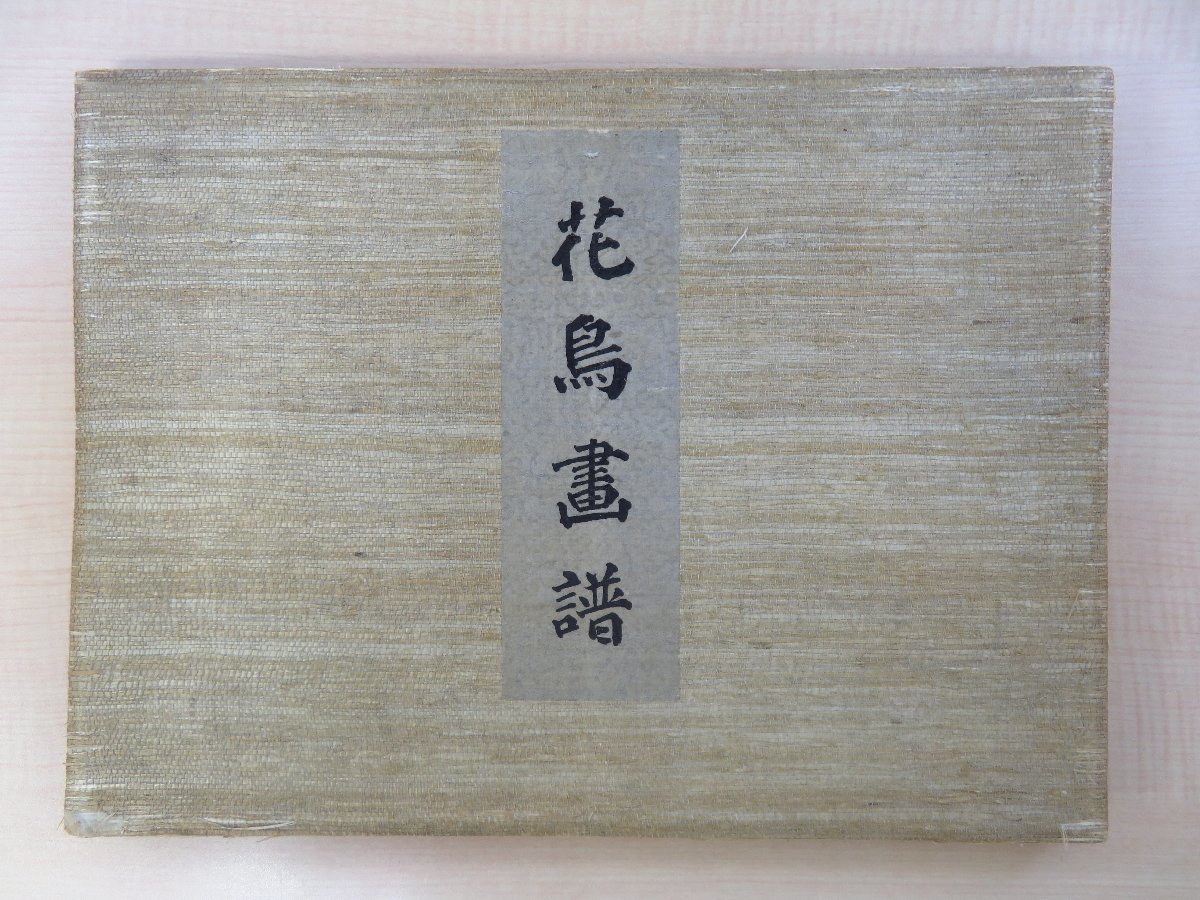 花鳥畫譜